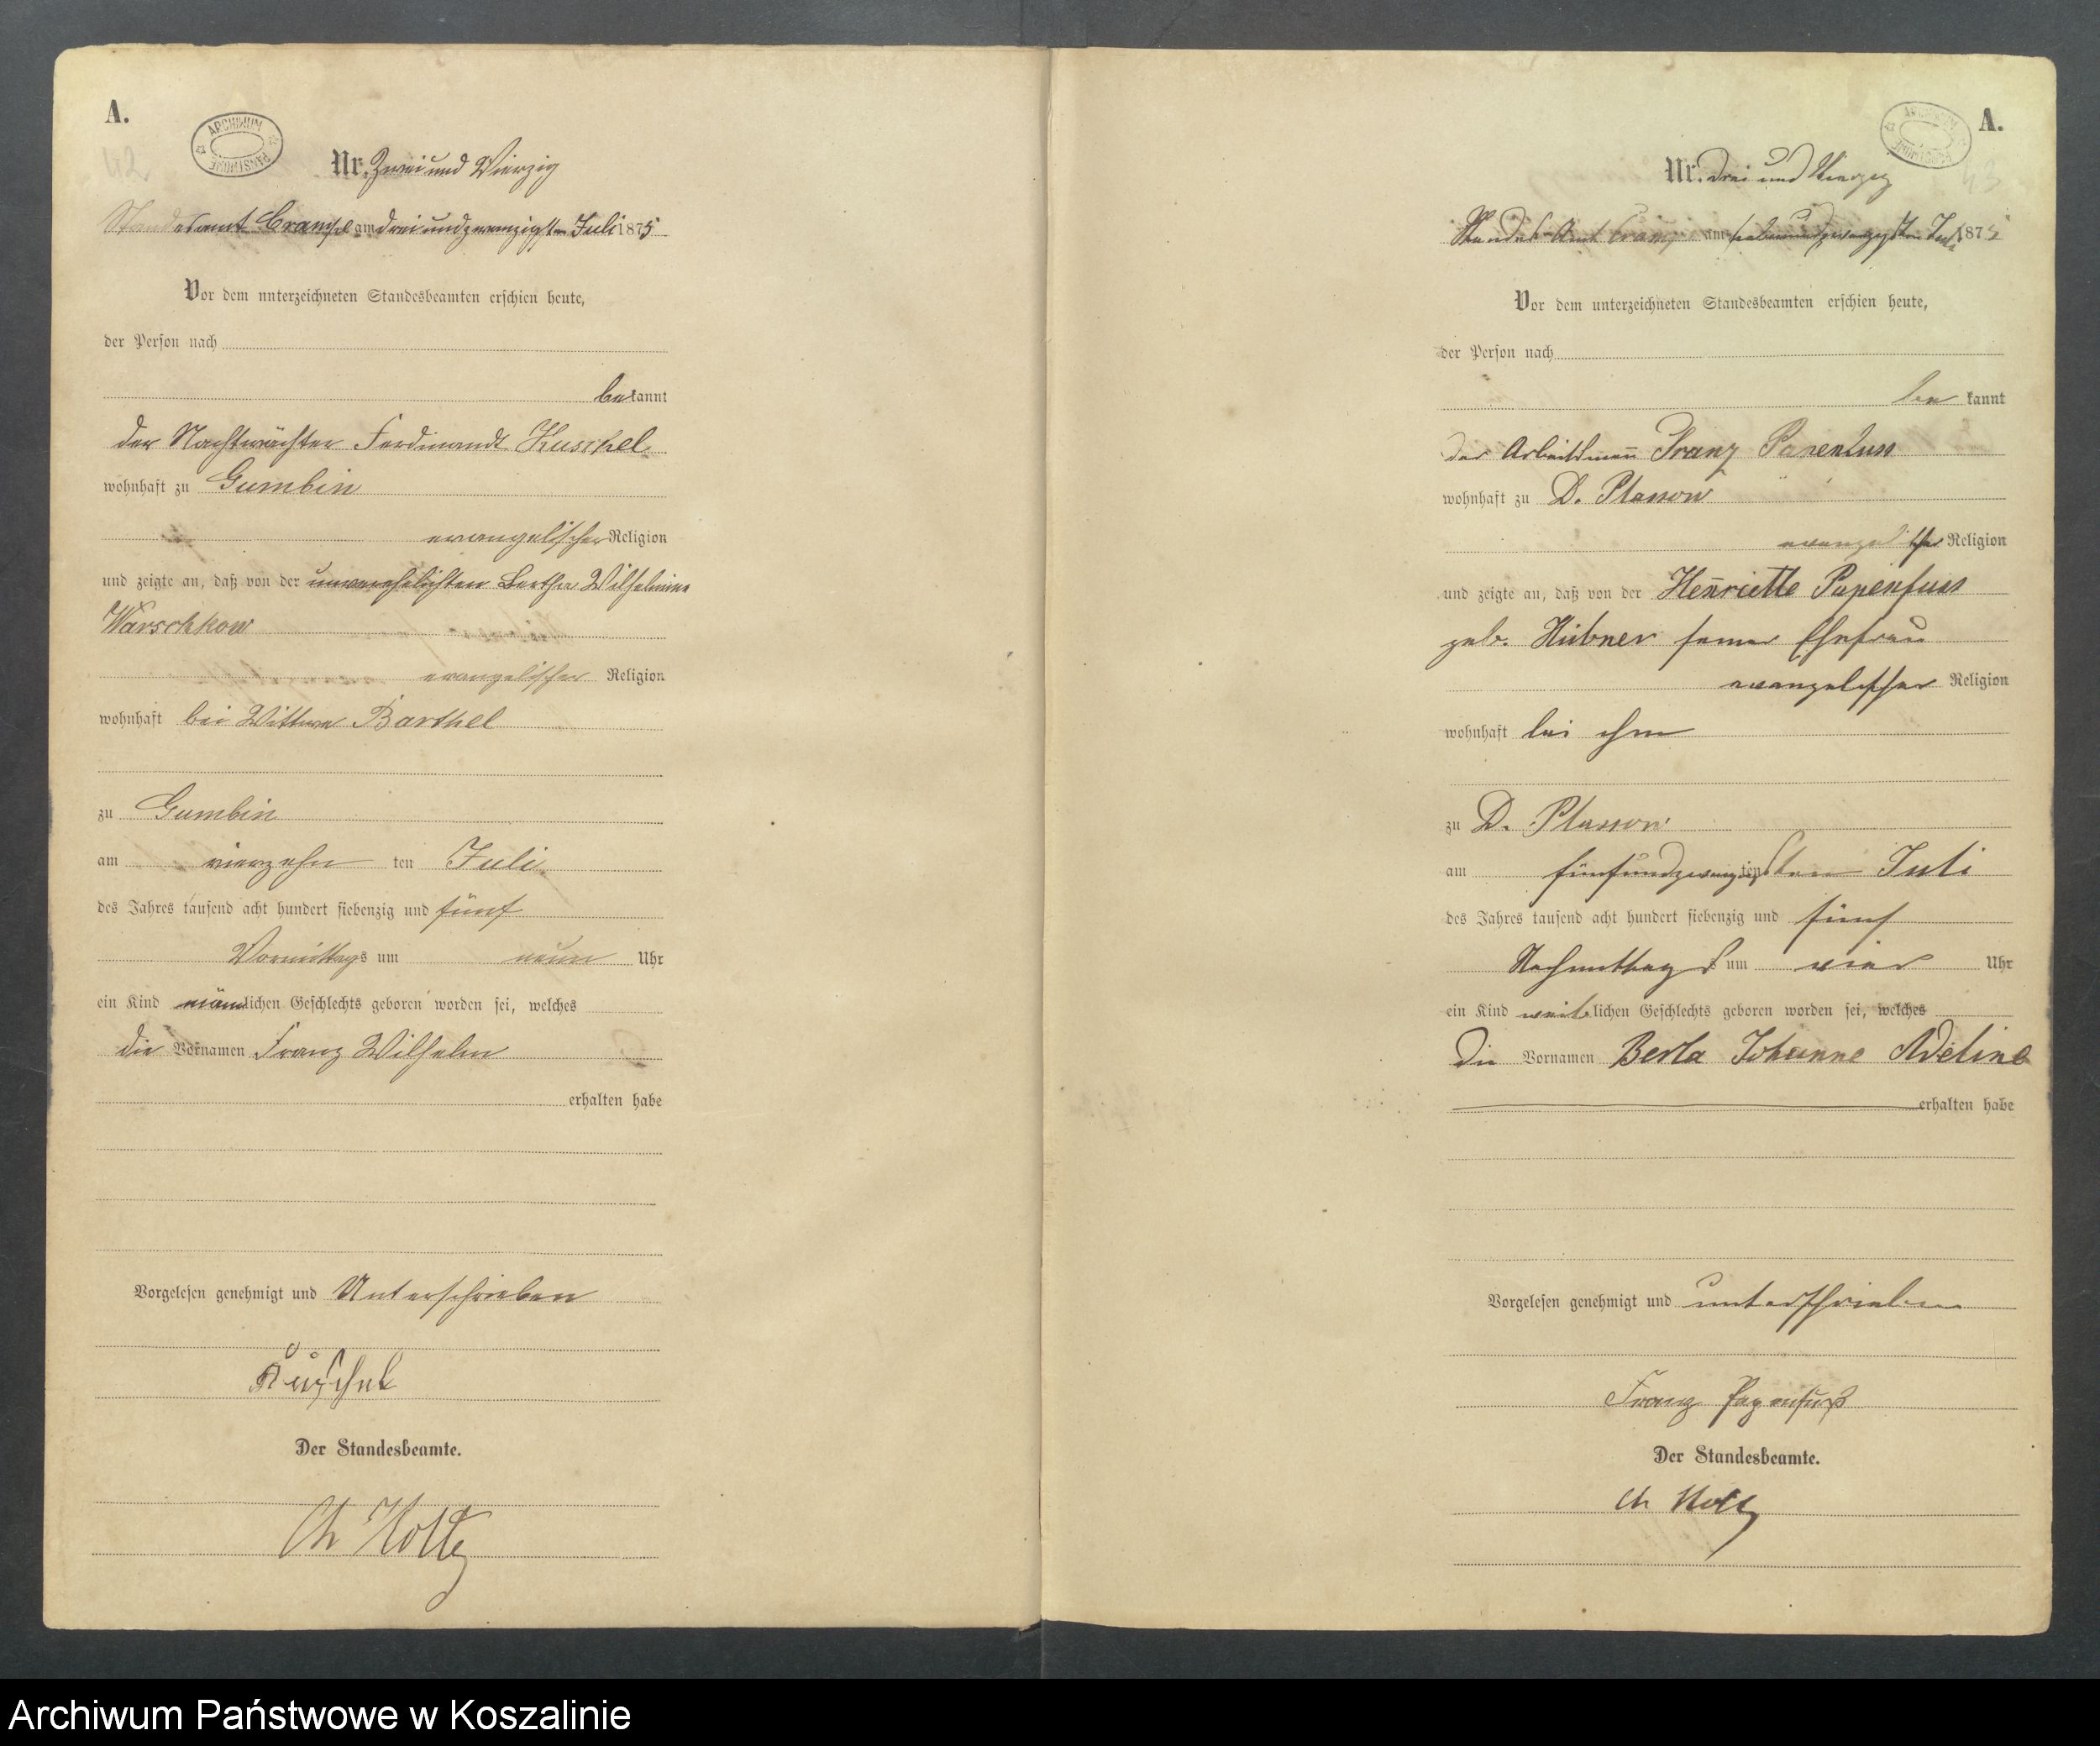 A.
42
ARCHIWUM PAŃSTWOWE
Nr. Zwei und Vierzig
Standesamt Crangen am drei und zwanzigsten Juli 1875
Vor dem unterzeichneten Standesbeamten erschien heute,
der Person nach
bekannt
der Nachtwächter Ferdinandt Kuschel
wohnhaft zu Gumbin
evangelischer Religion
und zeigte an, daß von der unverehelichten Bertha Wilhelmine
Warschkow
evangelischer Religion
wohnhaft bei Wittwe Barthel
zu Gumbin
am vierzehn ten Juli
des Jahres tausend acht hundert siebenzig und fünf
Vormittags um neun Uhr
ein Kind männlichen Geschlechts geboren worden sei, welches
die Vornamen Franz Wilhelm
erhalten habe
Vorgelesen genehmigt und Unterschrieben
Kuschel
Der Standesbeamte.
Ch Holtz
A.
43
ARCHIWUM PAŃSTWOWE
Nr. Drei und Vierzig
Standes-Amt Crangen am siebenundzwanzigsten Juli 1875
Vor dem unterzeichneten Standesbeamten erschien heute,
der Person nach
be kannt
der Arbeitsmann Franz Papenfuss
wohnhaft zu D. Plassow
evangelischer Religion
und zeigte an, daß von der Henriette Papenfuss
geb. Hübner seiner Ehefrau
evangelischer Religion
wohnhaft bei ihm
zu D. Plassow
am fünfundzwanzigsten Juli
des Jahres tausend acht hundert siebenzig und fünf
Nachmittags um vier Uhr
ein Kind weiblichen Geschlechts geboren worden sei, welches
Die Vornamen Berta Johanne Adeline
erhalten habe
Vorgelesen genehmigt und unterschrieben
Franz Papenfuß
Der Standesbeamte.
Ch Holtz
Archiwum Państwowe w Koszalinie